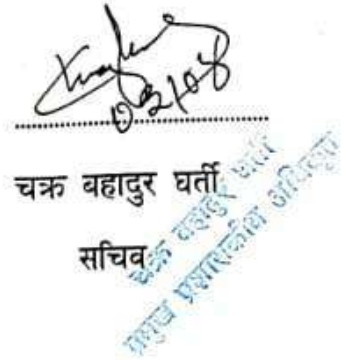 ०२/०४
चक्र बहादुर घर्ती
सचिव
चक्र बहादुर घर्ती
प्रमुख प्रशासकीय अधिकृत